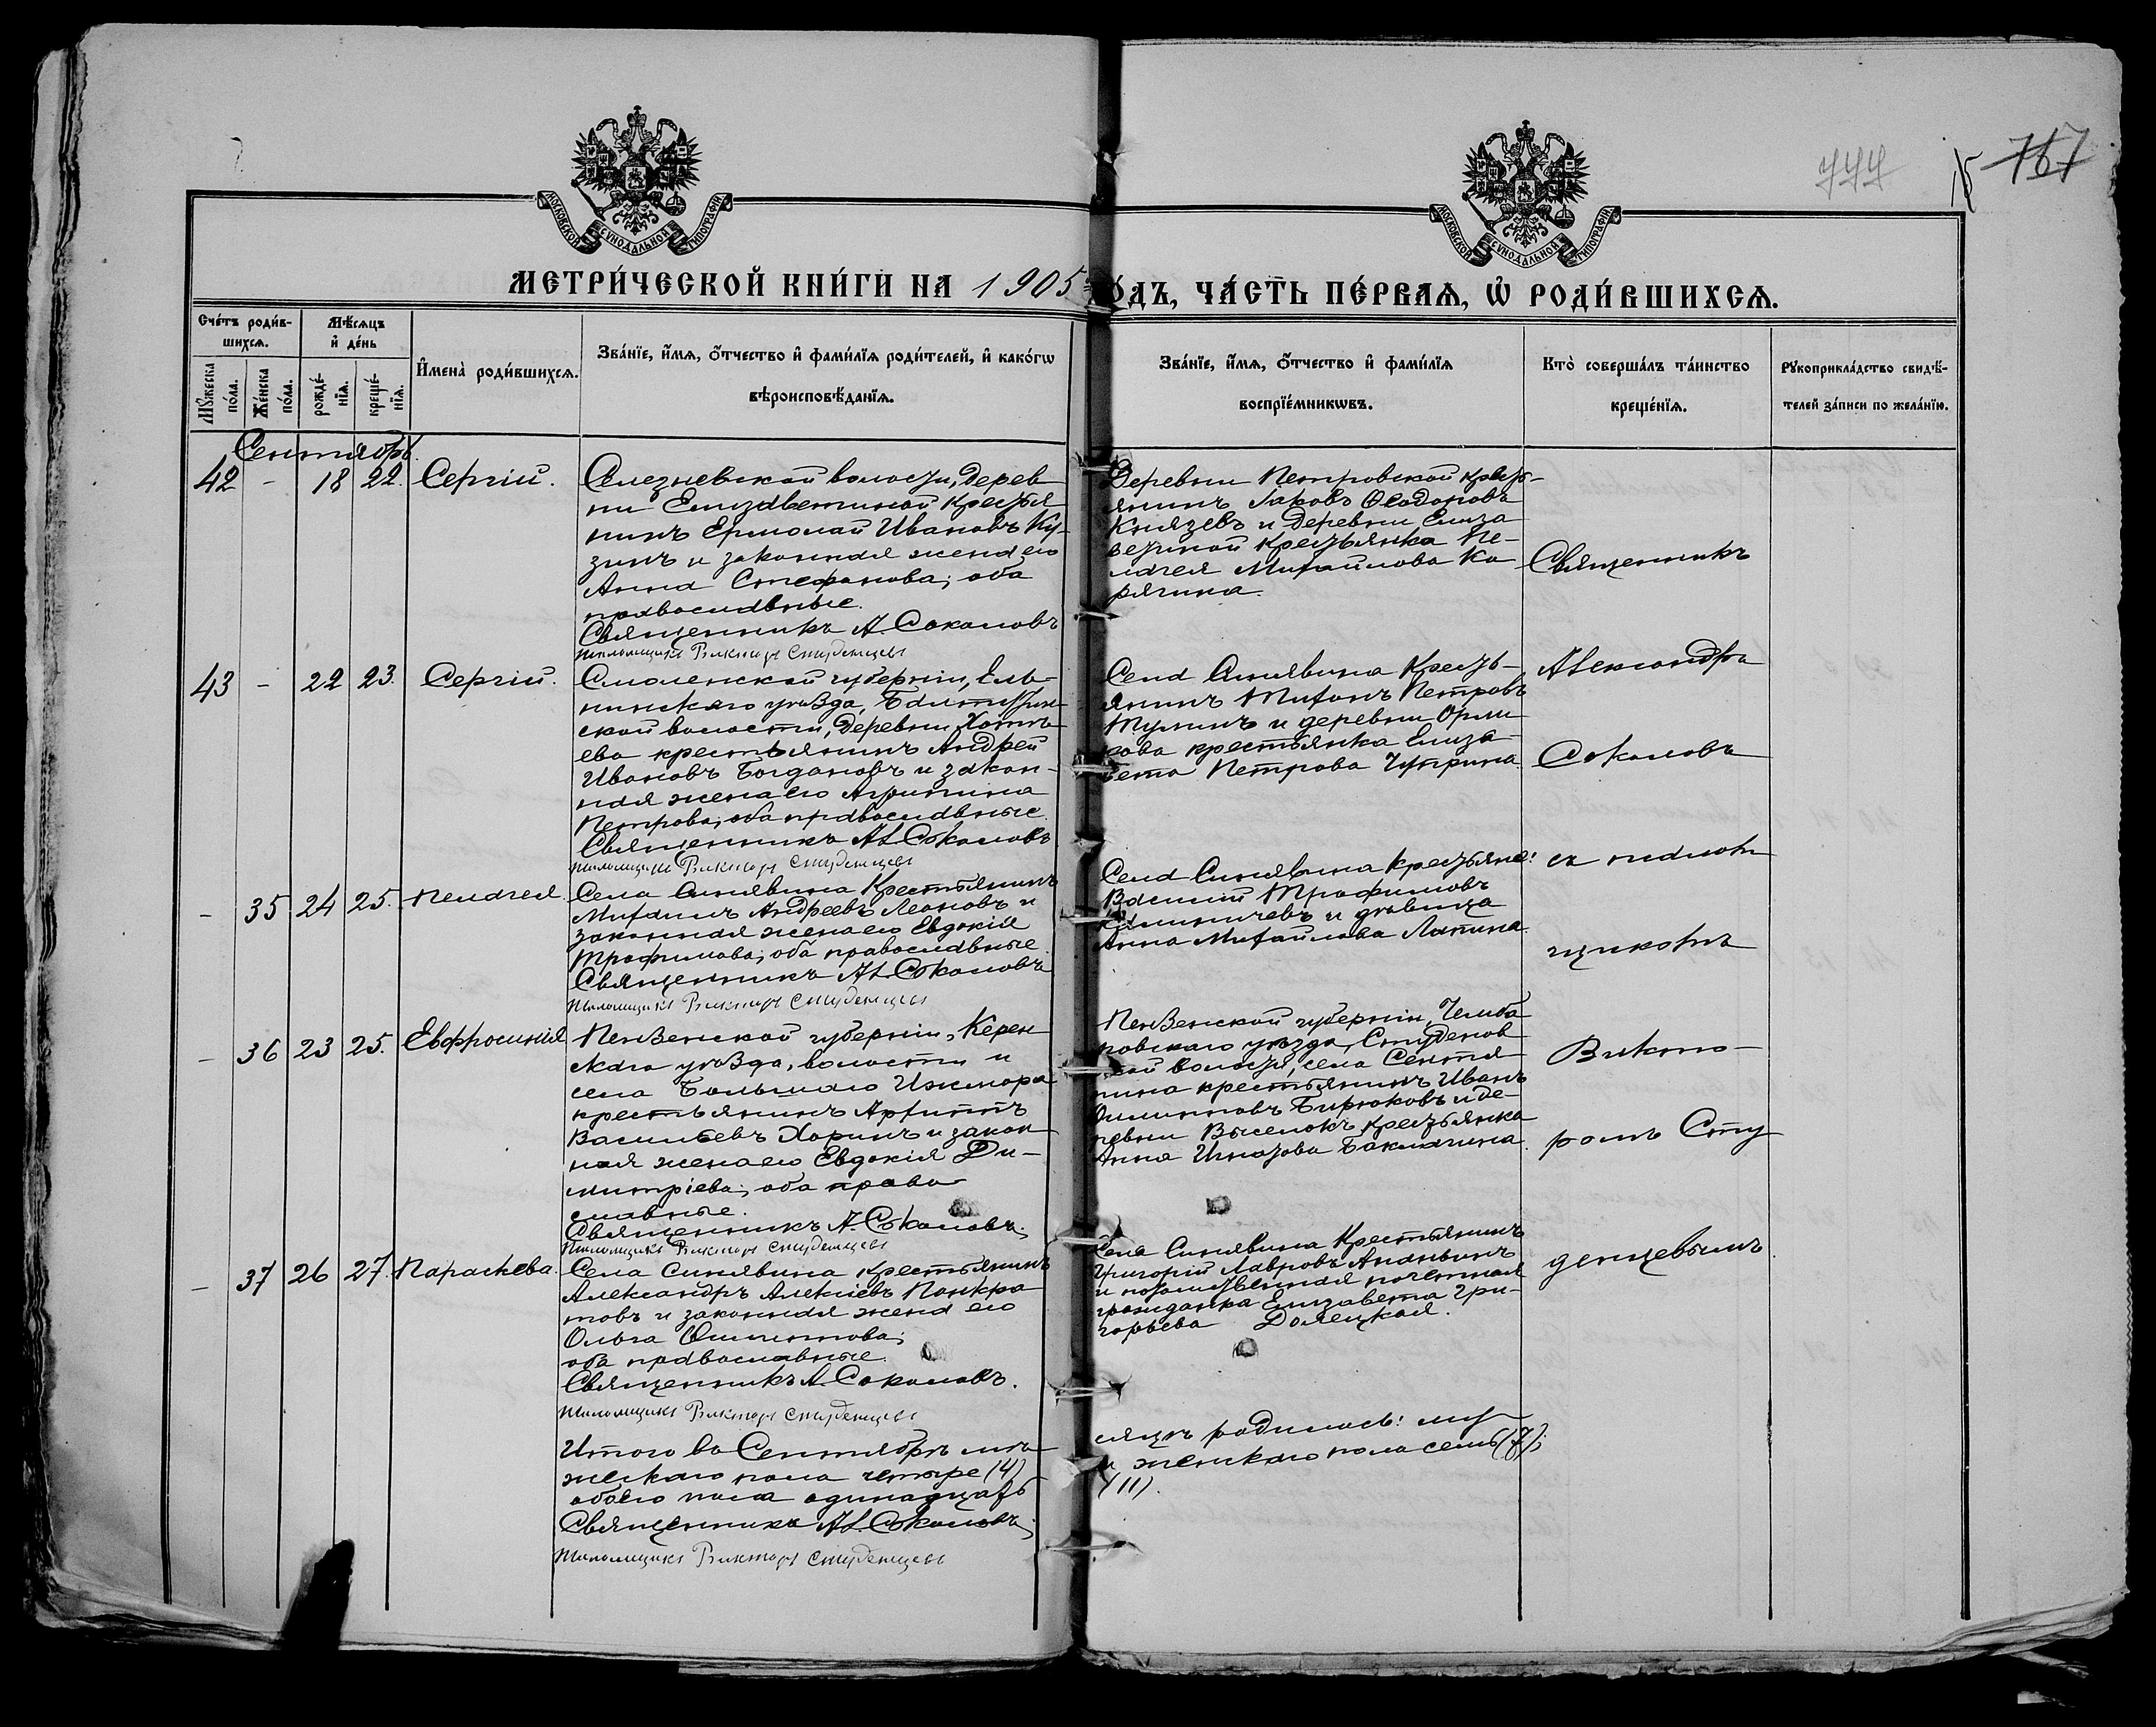 777
767
МОСКОВСКОЙ СУНОДАЛЬНОЙ ТИПОГРАФІИ
МОСКОВСКОЙ СУНОДАЛЬНОЙ ТИПОГРАФІИ
МЕТРИ́ЧЕСКОЙ КНИ́ГИ НА 1905 ГО́ДЪ, ЧА́СТЬ ПЕ́РВАѦ, Ѽ РОДИ́ВШИХСѦ.
Сче́тъ роди́в-
шихсѧ.
Мꙋ́жеска
по́ла.
Же́нска
по́ла.
Мѣ́сѧцъ
и҆ де́нь
рожде́-
нїѧ.
креще́-
нїѧ.
И҆мена̀ роди́вшихсѧ.
Зва́нїе, и҆́мѧ, ѻ҆́тчество и҆ фами́лїѧ роди́телей, и҆ како́гѡ
вѣроисповѣ́данїѧ.
Зва́нїе, и҆́мѧ, ѻ҆́тчество и҆ фами́лїѧ
воспрїе́мникѡвъ.
Кто̀ соверша́лъ та́инство
креще́нїѧ.
Рꙋкоприкла́дство свидѣ́-
телей за́писи по жела́нїю.
Сентябрь.
42 - 18 22. Сергій.
Слезневской волости, дерев
ни Елизаветиной крестья
нинъ Ермолай Ивановъ Ку-
зинъ и законная жена его
Анна Стефанова; оба
православные.
Священникъ А. Соколовъ
Псаломщикъ Викторъ Студенцевъ
Деревни Петровской кресть-
янинъ Іаковъ Ѳеодоровъ
Князевъ и деревни Елиза
ветиной крестьянка Пе-
лагея Михайлова Ка
рягина.
43 - 22 23. Сергій.
Смоленской губерніи, Ель-
нинскаго уѣзда, Балтутин-
ской волости, деревни Хотѣ-
ева крестьянинъ Андрей
Ивановъ Богдановъ и закон-
ная жена его Агрипина
Петрова; оба православные.
Священникъ Ал. Соколовъ
Псаломщикъ Викторъ Студенцевъ
Села Синявина кресть-
янинъ Тихонъ Петровъ
Тулинъ и деревни Орли
кова крестьянка Елиза-
вета Петрова Чуприна.
- 35 24 25. Пелагея
Села Синявина крестьянинъ
Михаилъ Андреевъ Леоновъ и
законная жена его Евдокія
Трофимова; оба православные.
Священникъ Ал. Соколовъ
Псаломщикъ Викторъ Студенцевъ
Села Синявина крестьяне:
Василій Трофимовъ
Климичевъ и дѣвица
Анна Михайлова Лапина.
- 36 23 25. Евфросинія
Пензенской губерніи, Керен
скаго уѣзда, волости и
села Большаго Ижмора
крестьянинъ Архиппъ
Васильевъ Хоринъ и закон
ная жена его Евдокія Ди-
митріева; оба право
славные.
Священникъ А. Соколовъ.
Псаломщикъ Викторъ Студенцевъ
Пензенской губерніи, Чемба
ровскаго уѣзда, Студенов
ской волости, села Сентя-
пина крестьянинъ Иванъ
Филипповъ Бирюковъ и де-
ревни Выселокъ крестьянка
Анна Игнатова Баклагина.
- 37 26 27. Параскева.
Села Синявина крестьянинъ
Александръ Алексіевъ Панкра
товъ и законная жена его
Ольга Филиппова;
оба православные.
Священникъ А. Соколовъ.
Псаломщикъ Викторъ Студенцевъ
Села Синявина крестьянинъ
Григорій Лавровъ Ананьинъ
и потомственная почетная
гражданка Елизавета Гри-
горьева Долецкая.
Священникъ
Александръ
Соколовъ
съ псалом
щикомъ
Викто-
ромъ Сту
денцевымъ.
Итого въ Сентябрѣ мѣ-
сяцѣ родилось: му
жескаго пола четыре (4)
и женскаго пола семь (7);
обоего пола одинадцать
(11).
Священникъ Ал. Соколовъ
Псаломщикъ Викторъ Студенцевъ